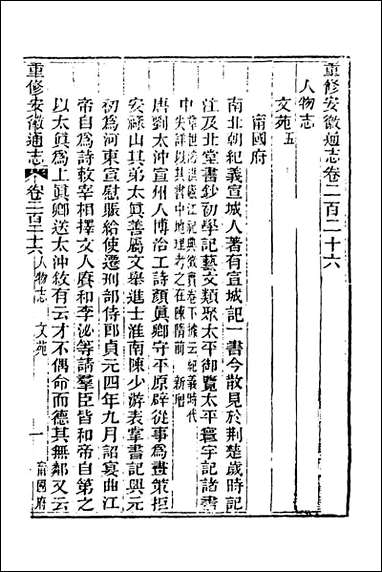 重修安徽通志卷二百二十六
人物志
文苑五
甯國府
南北朝紀義宣城人著有宣城記一書今散見於荆楚歲時記
注及北堂書鈔初學記藝文類聚太平御覽太平寰宇記諸書
中
失詳以其書中地理考之在陳隋前 新增
唐劉太沖宣州人博洽工詩顏眞卿守平原辟從事爲畫策拒
安祿山其弟太眞善屬文舉進士淮南陳少游表掌書記興元
初爲河東宣慰賑給使遷刑部侍郎貞元四年九月詔宴曲江
帝自爲詩敕宰相擇文人賡和李泌等請羣臣皆和帝自第之
以太眞爲上眞卿送太沖敘有云才不偶命而德其無鄰又云
重修安徽通志
卷二百二十六
人物志 文苑
一
甯國府